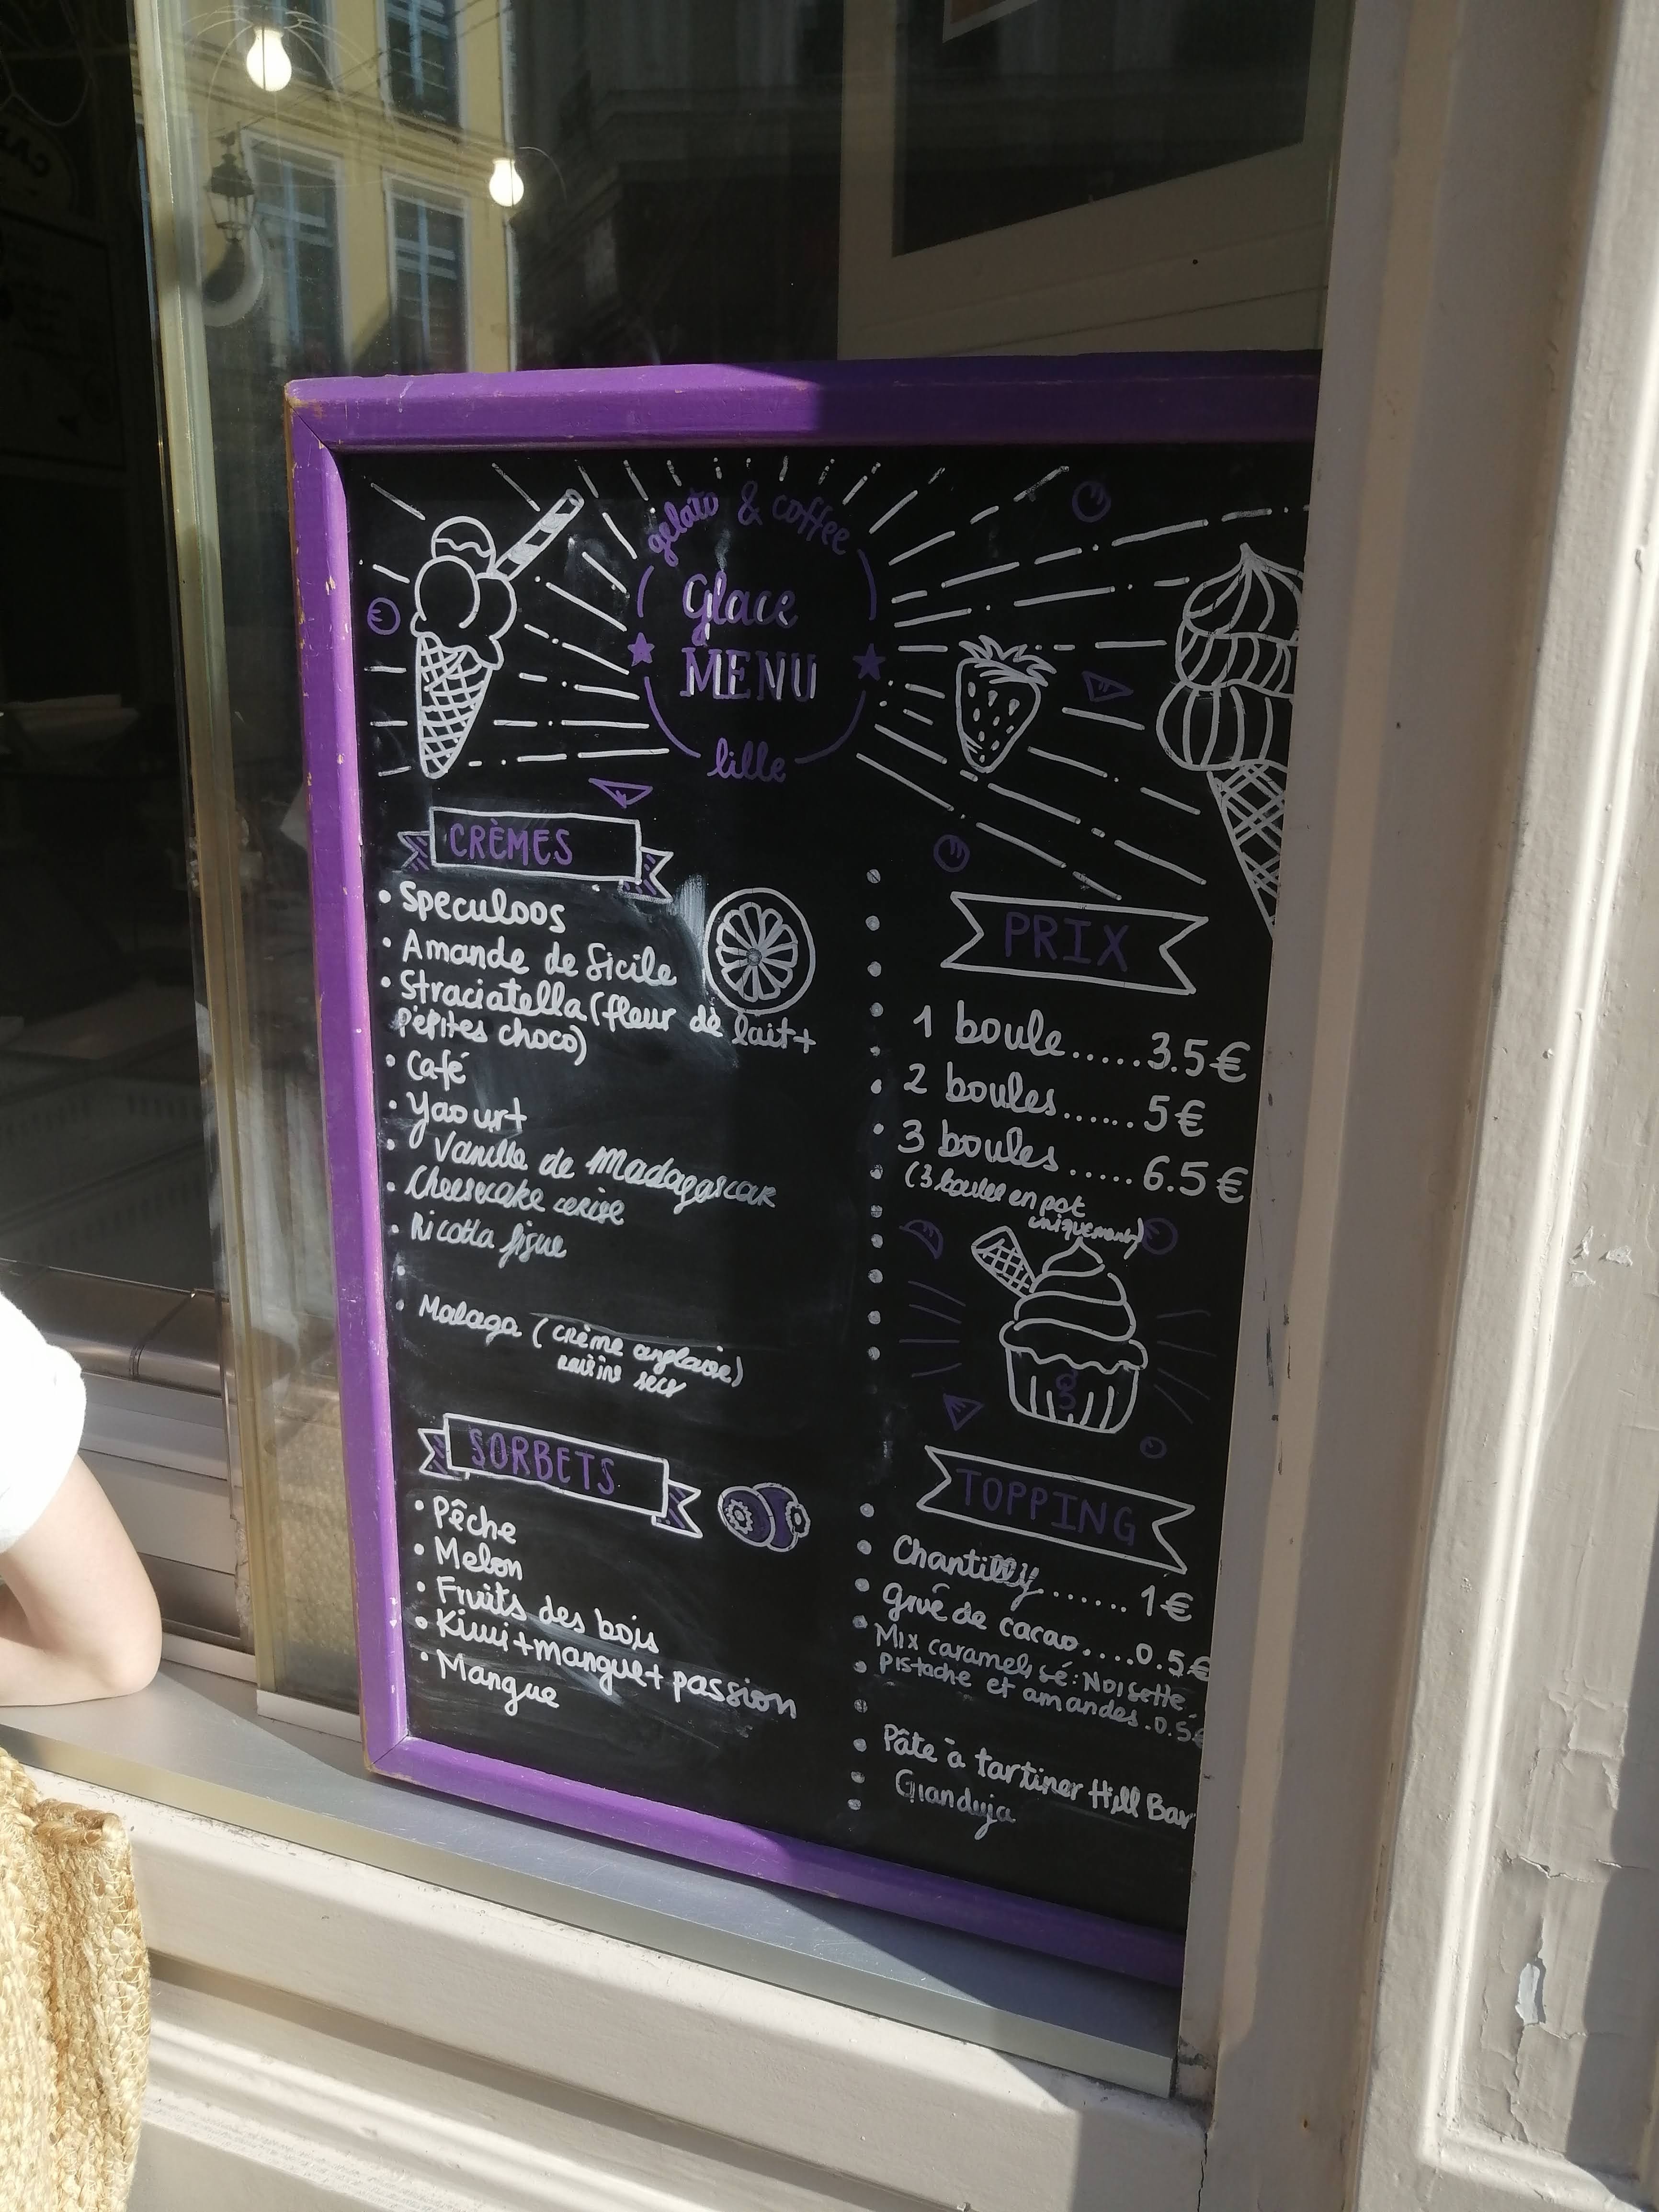 gelato & coffee
Glace
MENU
lille
CRÈMES
Speculoos
Amande de Sicile
Straciatella (fleur de lait +
pépites choco)
Café
Yaourt
Vanille de Madagascar
Cheesecake cerise
Ricotta figue
Malaga (crème anglaise)
raisins secs
SORBETS
Pêche
Melon
Fruits des bois
Kiwi+mangue+passion
Mangue
PRIX
1 boule......3.5€
2 boules.......5€
3 boules......6.5€
(3 boules en pot
uniquement)
TOPPING
Chantilly.......1€
grué de cacao....0.5€
Mix caramelisé: Noisette,
Pistache et amandes.0.5€
Pâte à tartiner Hill Bar
Gianduja